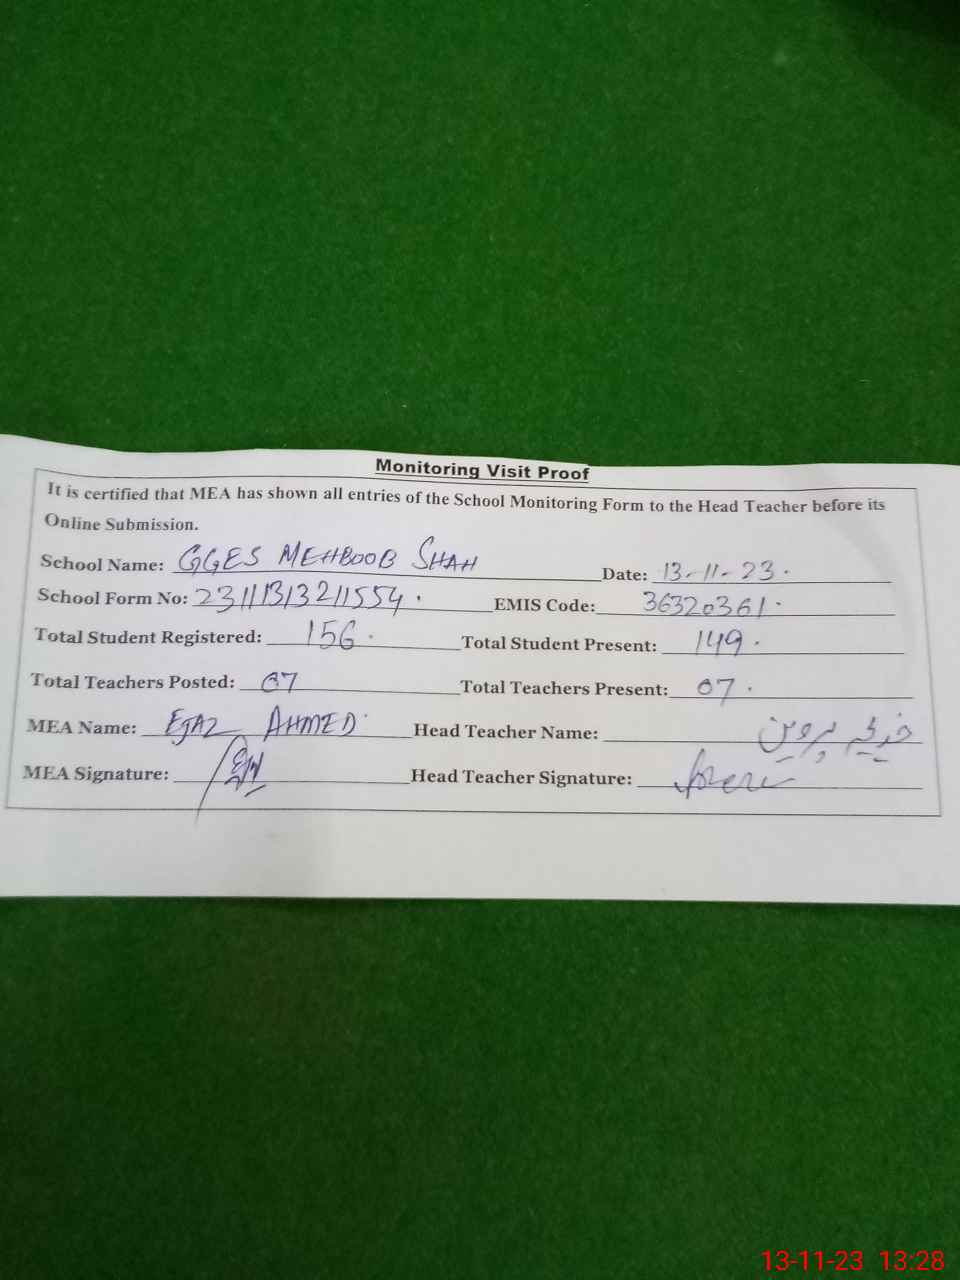 Monitoring Visit Proof
It is certified that MEA has shown all entries of the School Monitoring Form to the Head Teacher before its
Online Submission.
School Name: GGES MEHBOOB SHAH Date: 13-11-23.
School Form No: 23111313211554. EMIS Code: 36320361.
Total Student Registered: 156. Total Student Present: 149.
Total Teachers Posted: 07 Total Teachers Present: 07.
MEA Name: EJAZ AHMED Head Teacher Name: پروین
MEA Signature: Head Teacher Signature:
13-11-23 13:28